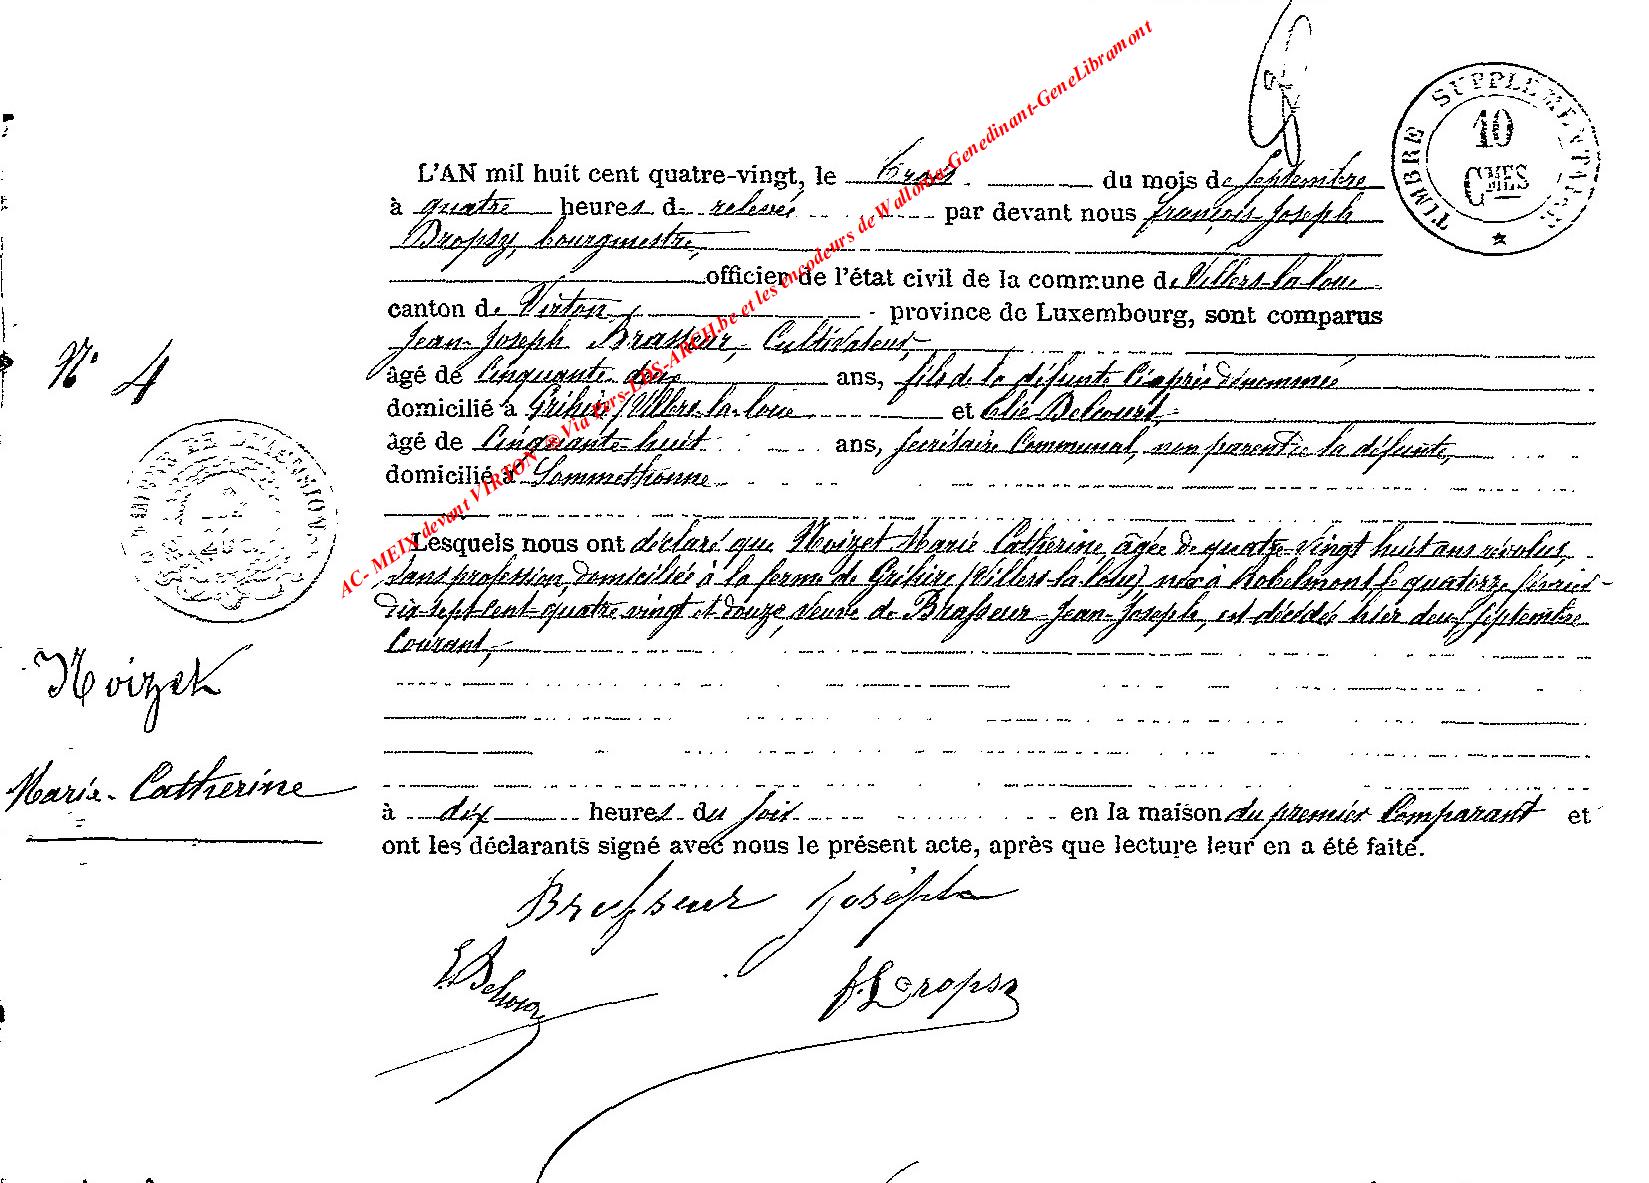 TIMBRE SUPPLEMENTAIRE
10
CMES
L'AN mil huit cent quatre-vingt, le trois du mois de Septembre
à quatre heures de relevée par devant nous françois Joseph
Dropsy, bourgmestre,
officier de l'état civil de la commune de Villers-la-loue
canton de Virton, province de Luxembourg, sont comparus
Jean-Joseph Brasseur, Cultivateur,
âgé de Cinquante-deux ans, fils de la défunte Ciaprès dénommée
domicilié à Grihire (Villers-la-loue et Elie Delcourt,
âgé de Cinquante-huit ans, Secrétaire Communal, non parent de la défunte,
domicilié à Sommethonne
Lesquels nous ont déclaré que Noizet Marie Catherine, âgée de quatre-vingt huit ans révolus,
sans profession, domiciliée à la ferme de Grihire (Villers-la-loue) née à Robelmont le quatorze février
dix-sept-cent-quatre vingt et douze, Veuve de Brasseur Jean-Joseph, est décédée hier deux Septembre
Courant,
à dix heures du soir en la maison du premier Comparant et
ont les déclarants signé avec nous le présent acte, après que lecture leur en a été faite.
N° 4
Noizet
Marie-Catherine
Brasseur Joseph
f. Dropsy
AC- MEIX devant VIRTON ® Via Pers-LDS-ARCH.be et les encodeurs de Wallonia-Genedinant-GeneLibramont